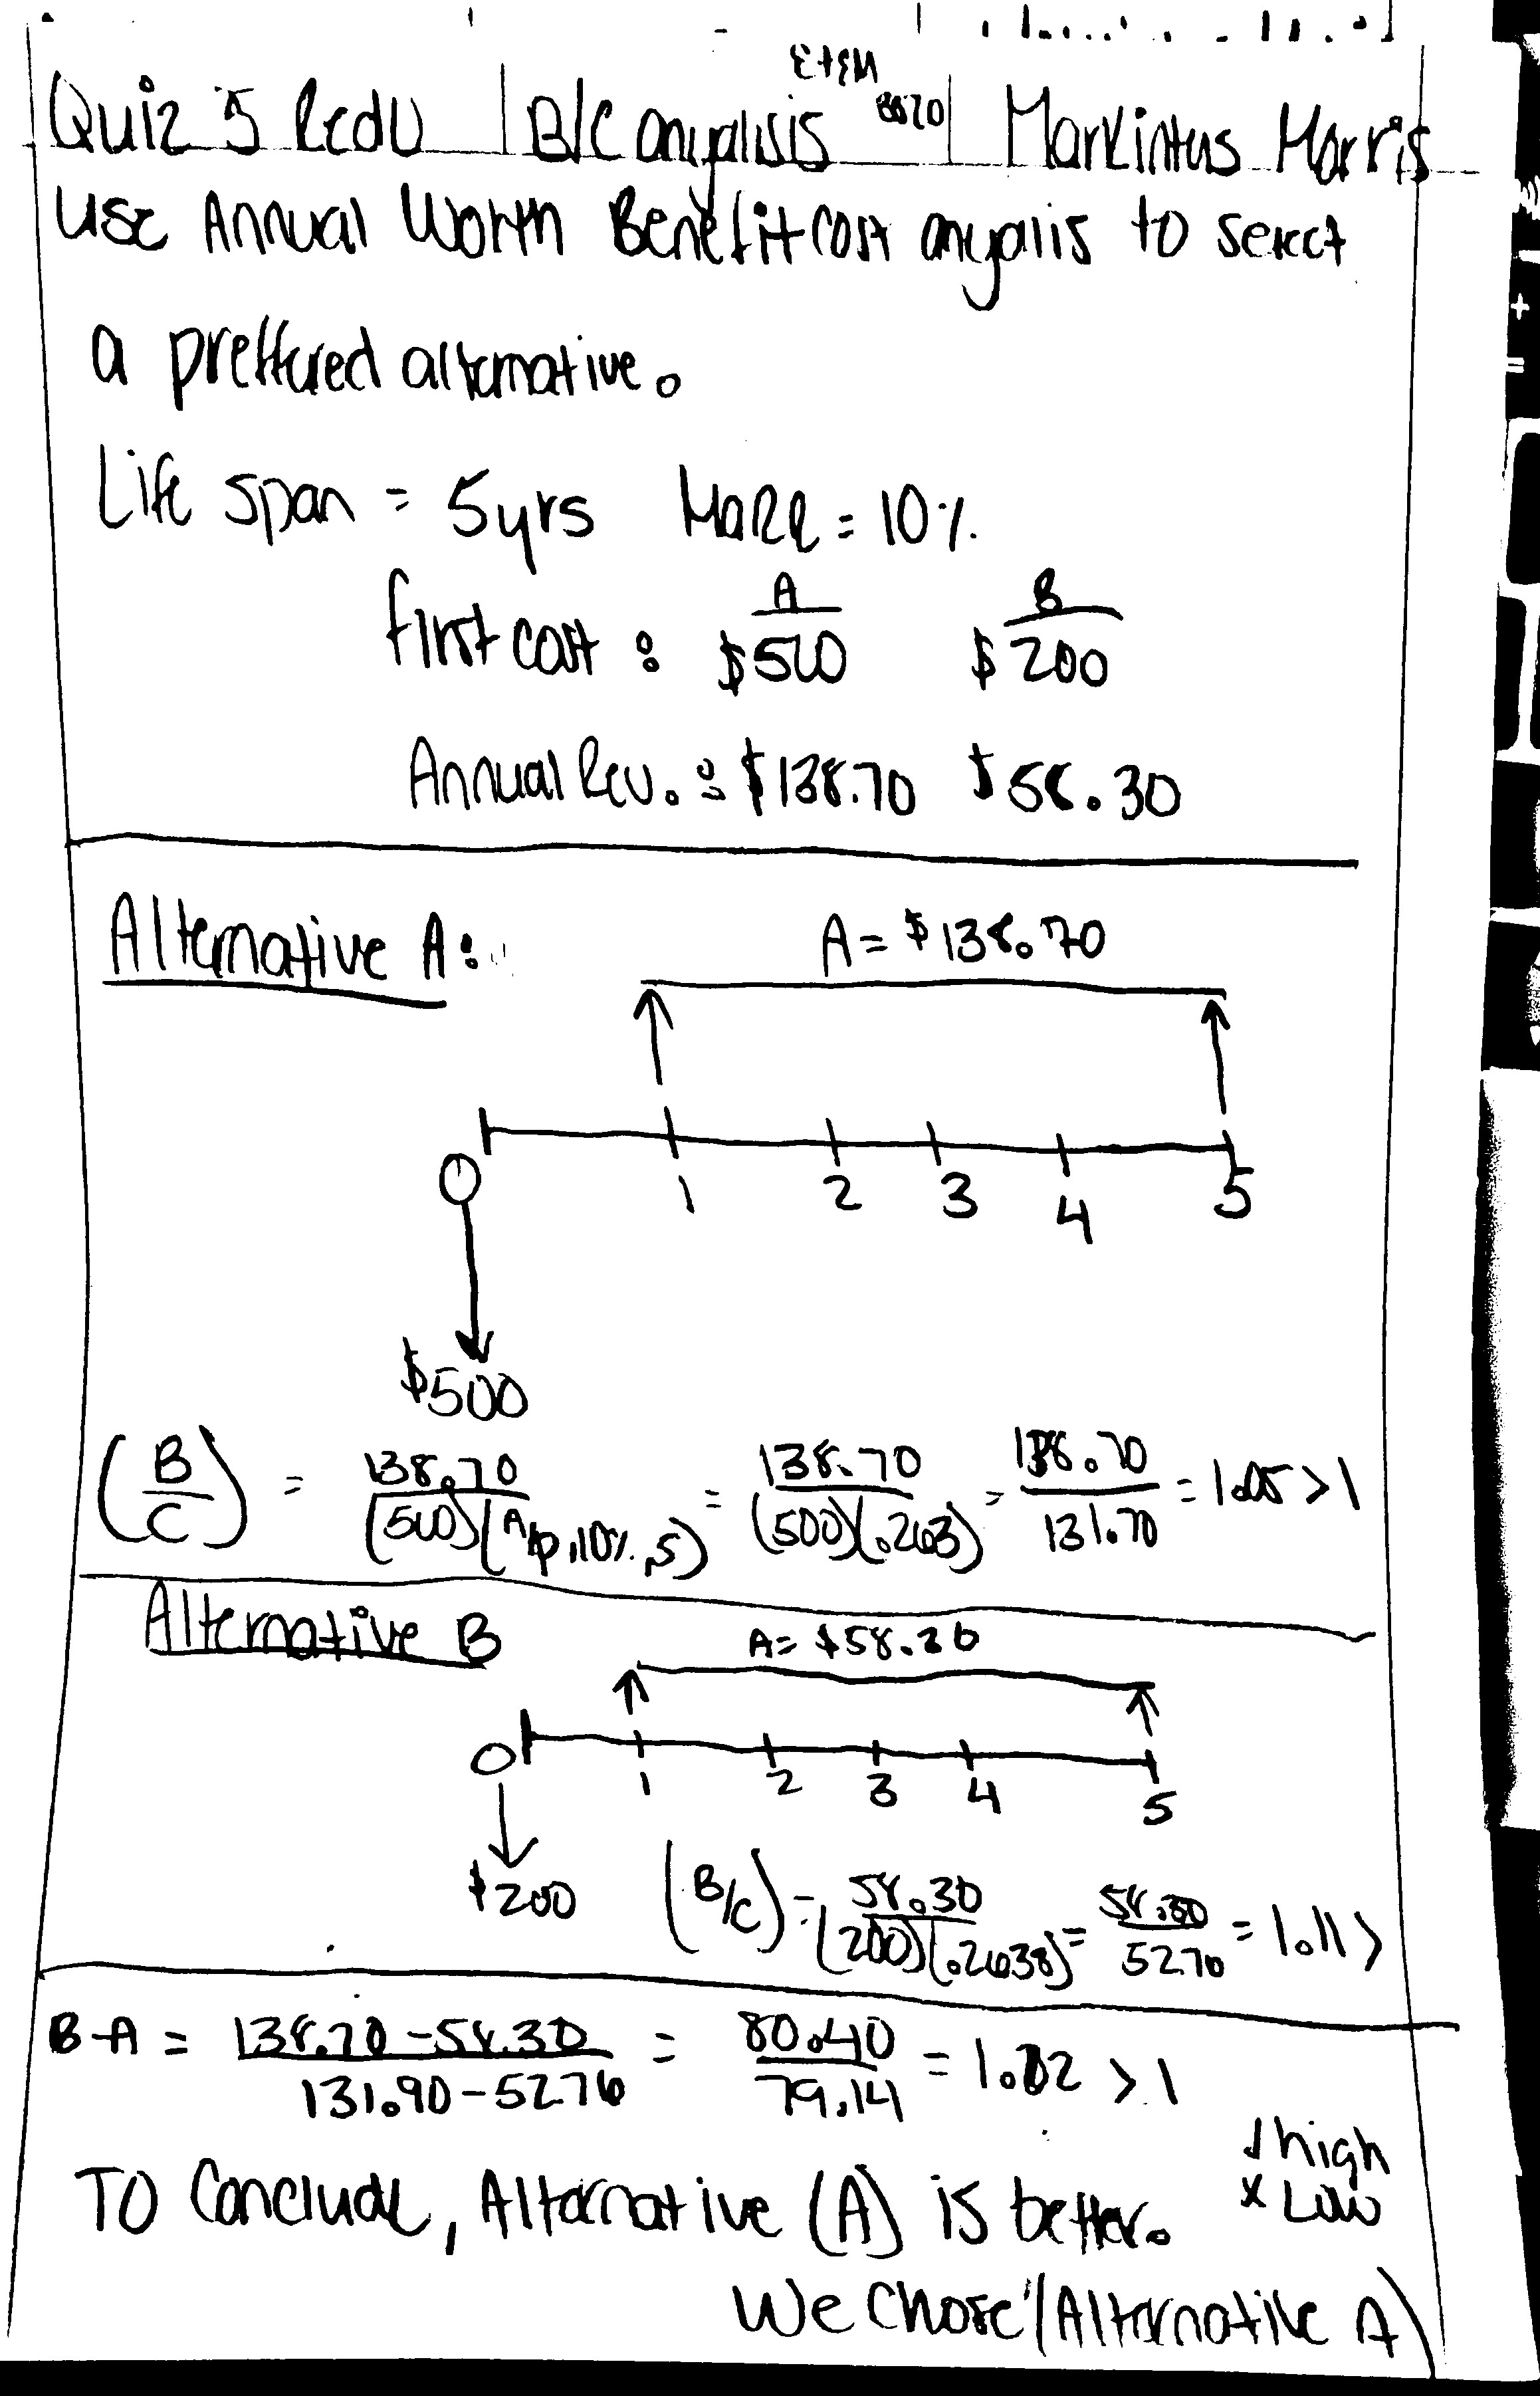 Quiz 5 Redo | B/C anyalisis | Markintus Morris
use Annual Worth Benefit cost anyalis to select
a preffured alternative.
Life span = 5yrs MaRR = 10%
A B
first cost : $500 $200
Annual Rev. : $138.70 $58.30
Alternative A:
A = $138.70
1 2 3 4 5
0
$500
(B/C) = 138.70/(500)(A/p,10%,5) = 138.70/(500)(.263) = 138.70/131.70 = 1.05 > 1
Alternative B
A= $58.30
0 1 2 3 4 5
$200 (B/C) = 58.30/(200)(.2638) = 58.30/52.70 = 1.11 >
B-A = 138.70-58.30/131.90-52.76 = 80.40/79.14 = 1.02 > 1
√ high
x Low
To Conclude, Alternative (A) is better.
We chose (Alternative A)